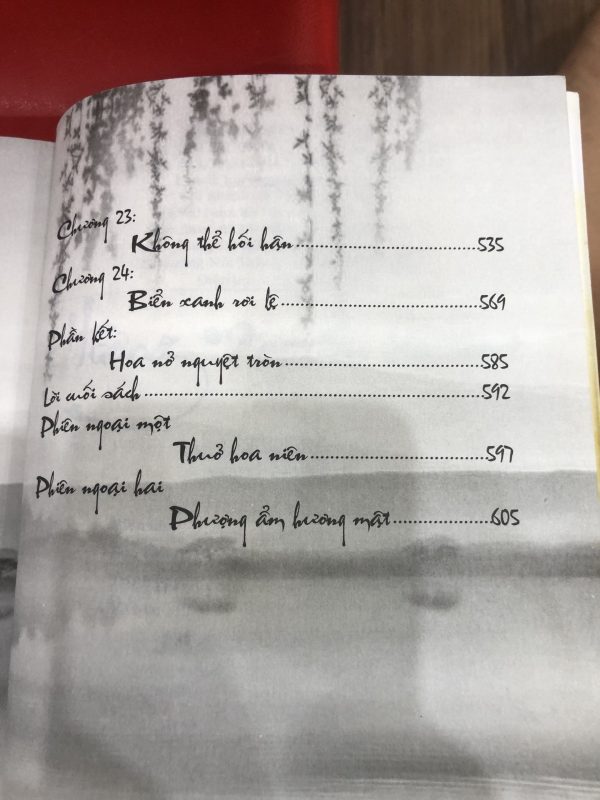 Chương 23:
Không thể hối hận..........................535
Chương 24:
Biển xanh rơi lệ............................569
Phần kết:
Hoa nở nguyệt tròn............................585
Lời cuối sách................................................592
Phiên ngoại một
Thuở hoa niên.........................597
Phiên ngoại hai
Phượng ẩm hương mật..............605